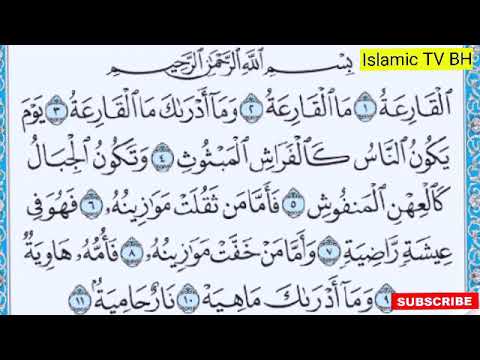 Islamic TV BH
بِسْمِ اللَّهِ الرَّحْمَٰنِ الرَّحِيمِ
الْقَارِعَةُ ۝١ مَا الْقَارِعَةُ ۝٢ وَمَا أَدْرَىٰكَ مَا الْقَارِعَةُ ۝٣ يَوْمَ
يَكُونُ النَّاسُ كَالْفَرَاشِ الْمَبْثُوثِ ۝٤ وَتَكُونُ الْجِبَالُ
كَالْعِهْنِ الْمَنفُوشِ ۝٥ فَأَمَّا مَن ثَقُلَتْ مَوَٰزِينُهُۥ ۝٦ فَهُوَ فِي
عِيشَةٍ رَّاضِيَةٍ ۝٧ وَأَمَّا مَنْ خَفَّتْ مَوَٰزِينُهُۥ ۝٨ فَأُمُّهُۥ هَاوِيَةٌ
۝٩ وَمَا أَدْرَىٰكَ مَا هِيَهْ ۝١٠ نَارٌ حَامِيَةٌ ۝١١
SUBSCRIBE